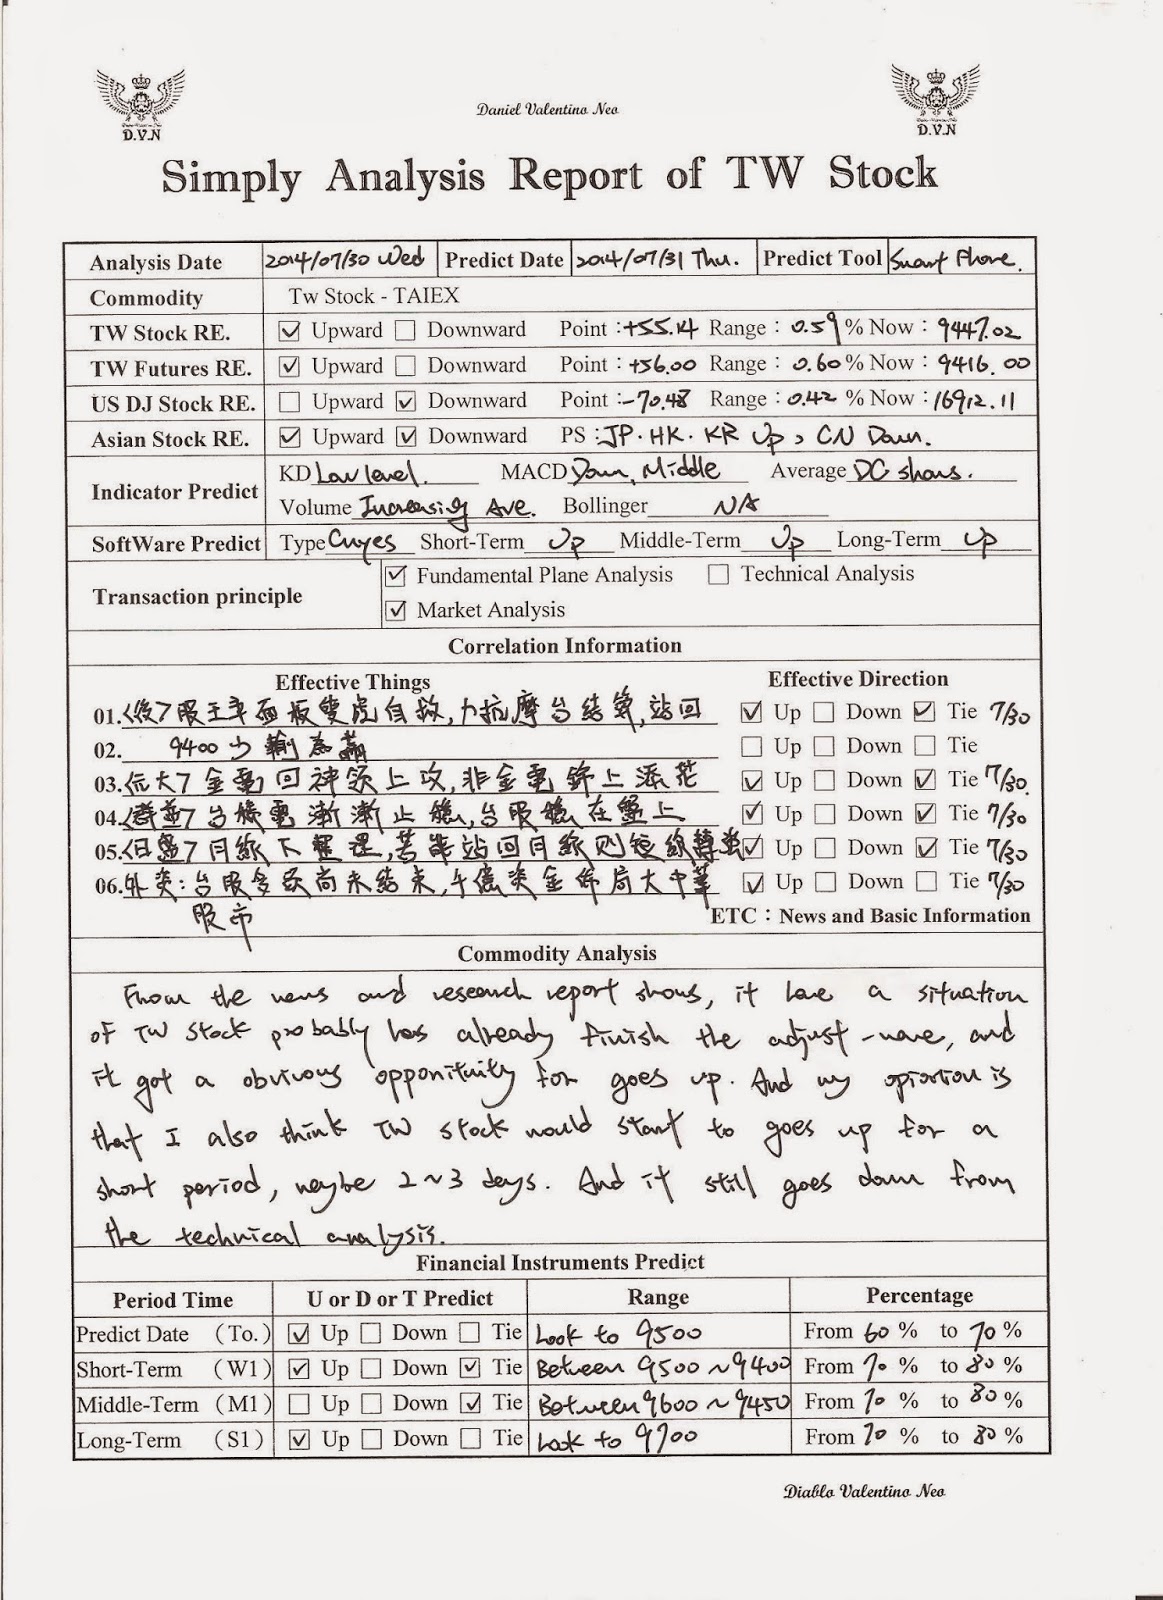 D.V.N
Daniel Valentino Neo
D.V.N
Simply Analysis Report of TW Stock
Analysis Date 2014/07/30 Wed Predict Date 2014/07/31 Thu. Predict Tool Smart Phone.
Commodity Tw Stock - TAIEX
TW Stock RE. ☑ Upward ☐ Downward Point：+55.14 Range：0.59 % Now：9447.02
TW Futures RE. ☑ Upward ☐ Downward Point：+56.00 Range：0.60 % Now：9416.00
US DJ Stock RE. ☐ Upward ☑ Downward Point：-70.48 Range：0.42 % Now：16912.11
Asian Stock RE. ☑ Upward ☑ Downward PS：JP. HK. KR Up, CN Down.
Indicator Predict KD Low level. MACD Down, Middle Average DC shows.
Volume Increasing Ave. Bollinger NA
SoftWare Predict Type Short-Term Up Middle-Term Up Long-Term Up
Transaction principle ☑ Fundamental Plane Analysis ☐ Technical Analysis
☑ Market Analysis
Correlation Information
Effective Things Effective Direction
01. 股王平面板雙虎自救,力抗摩台結算,站回 ☑ Up ☐ Down ☑ Tie 7/30
02. 9400 輸為贏 ☐ Up ☐ Down ☐ Tie
03. <元大> 金電回神領上攻,非金電錦上添花 ☑ Up ☐ Down ☑ Tie 7/30.
04. <群益> 台積電漸漸止穩,台股穩在盤上 ☑ Up ☐ Down ☑ Tie 7/30
05. <日盛> 月線下整理,若能站回月線則短線轉強 ☑ Up ☐ Down ☑ Tie 7/30
06. 外資:台股多頭尚未結束,千億資金佈局大中華 ☑ Up ☐ Down ☐ Tie 7/30
股市 ETC：News and Basic Information
Commodity Analysis
From the news and research report shows, it have a situation
of TW stock probably has already finish the adjust-wave, and
it got a obvious opponituity for goes up. And my opiortion is
that I also think TW stock would start to goes up for a
short period, maybe 2~3 days. And it still goes down from
the technical analysis.
Financial Instruments Predict
Period Time U or D or T Predict Range Percentage
Predict Date （To.） ☑ Up ☐ Down ☐ Tie Look to 9500 From 60 % to 70 %
Short-Term （W1） ☑ Up ☐ Down ☑ Tie Between 9500~9400 From 70 % to 80 %
Middle-Term （M1） ☐ Up ☐ Down ☑ Tie Between 9600~9450 From 70 % to 80 %
Long-Term （S1） ☑ Up ☐ Down ☐ Tie Look to 9700 From 70 % to 80 %
Diablo Valentino Neo